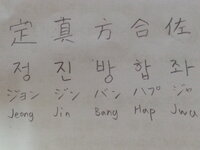 定 真 方 合 佐
정 진 방 합 좌
ジョン ジン バン ハプ ジャ
Jeong Jin Bang Hap Jwa